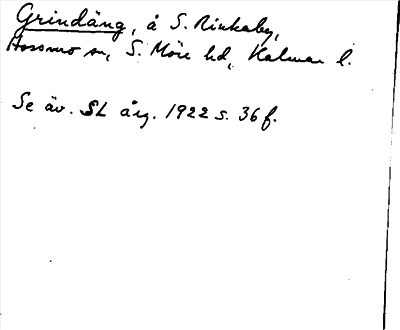 Grindäng, å S. Rinkaby,
Hossmo sn, S. Möre hd, Kalmar l.
Se äv. SL årg. 1922 s. 36 f.